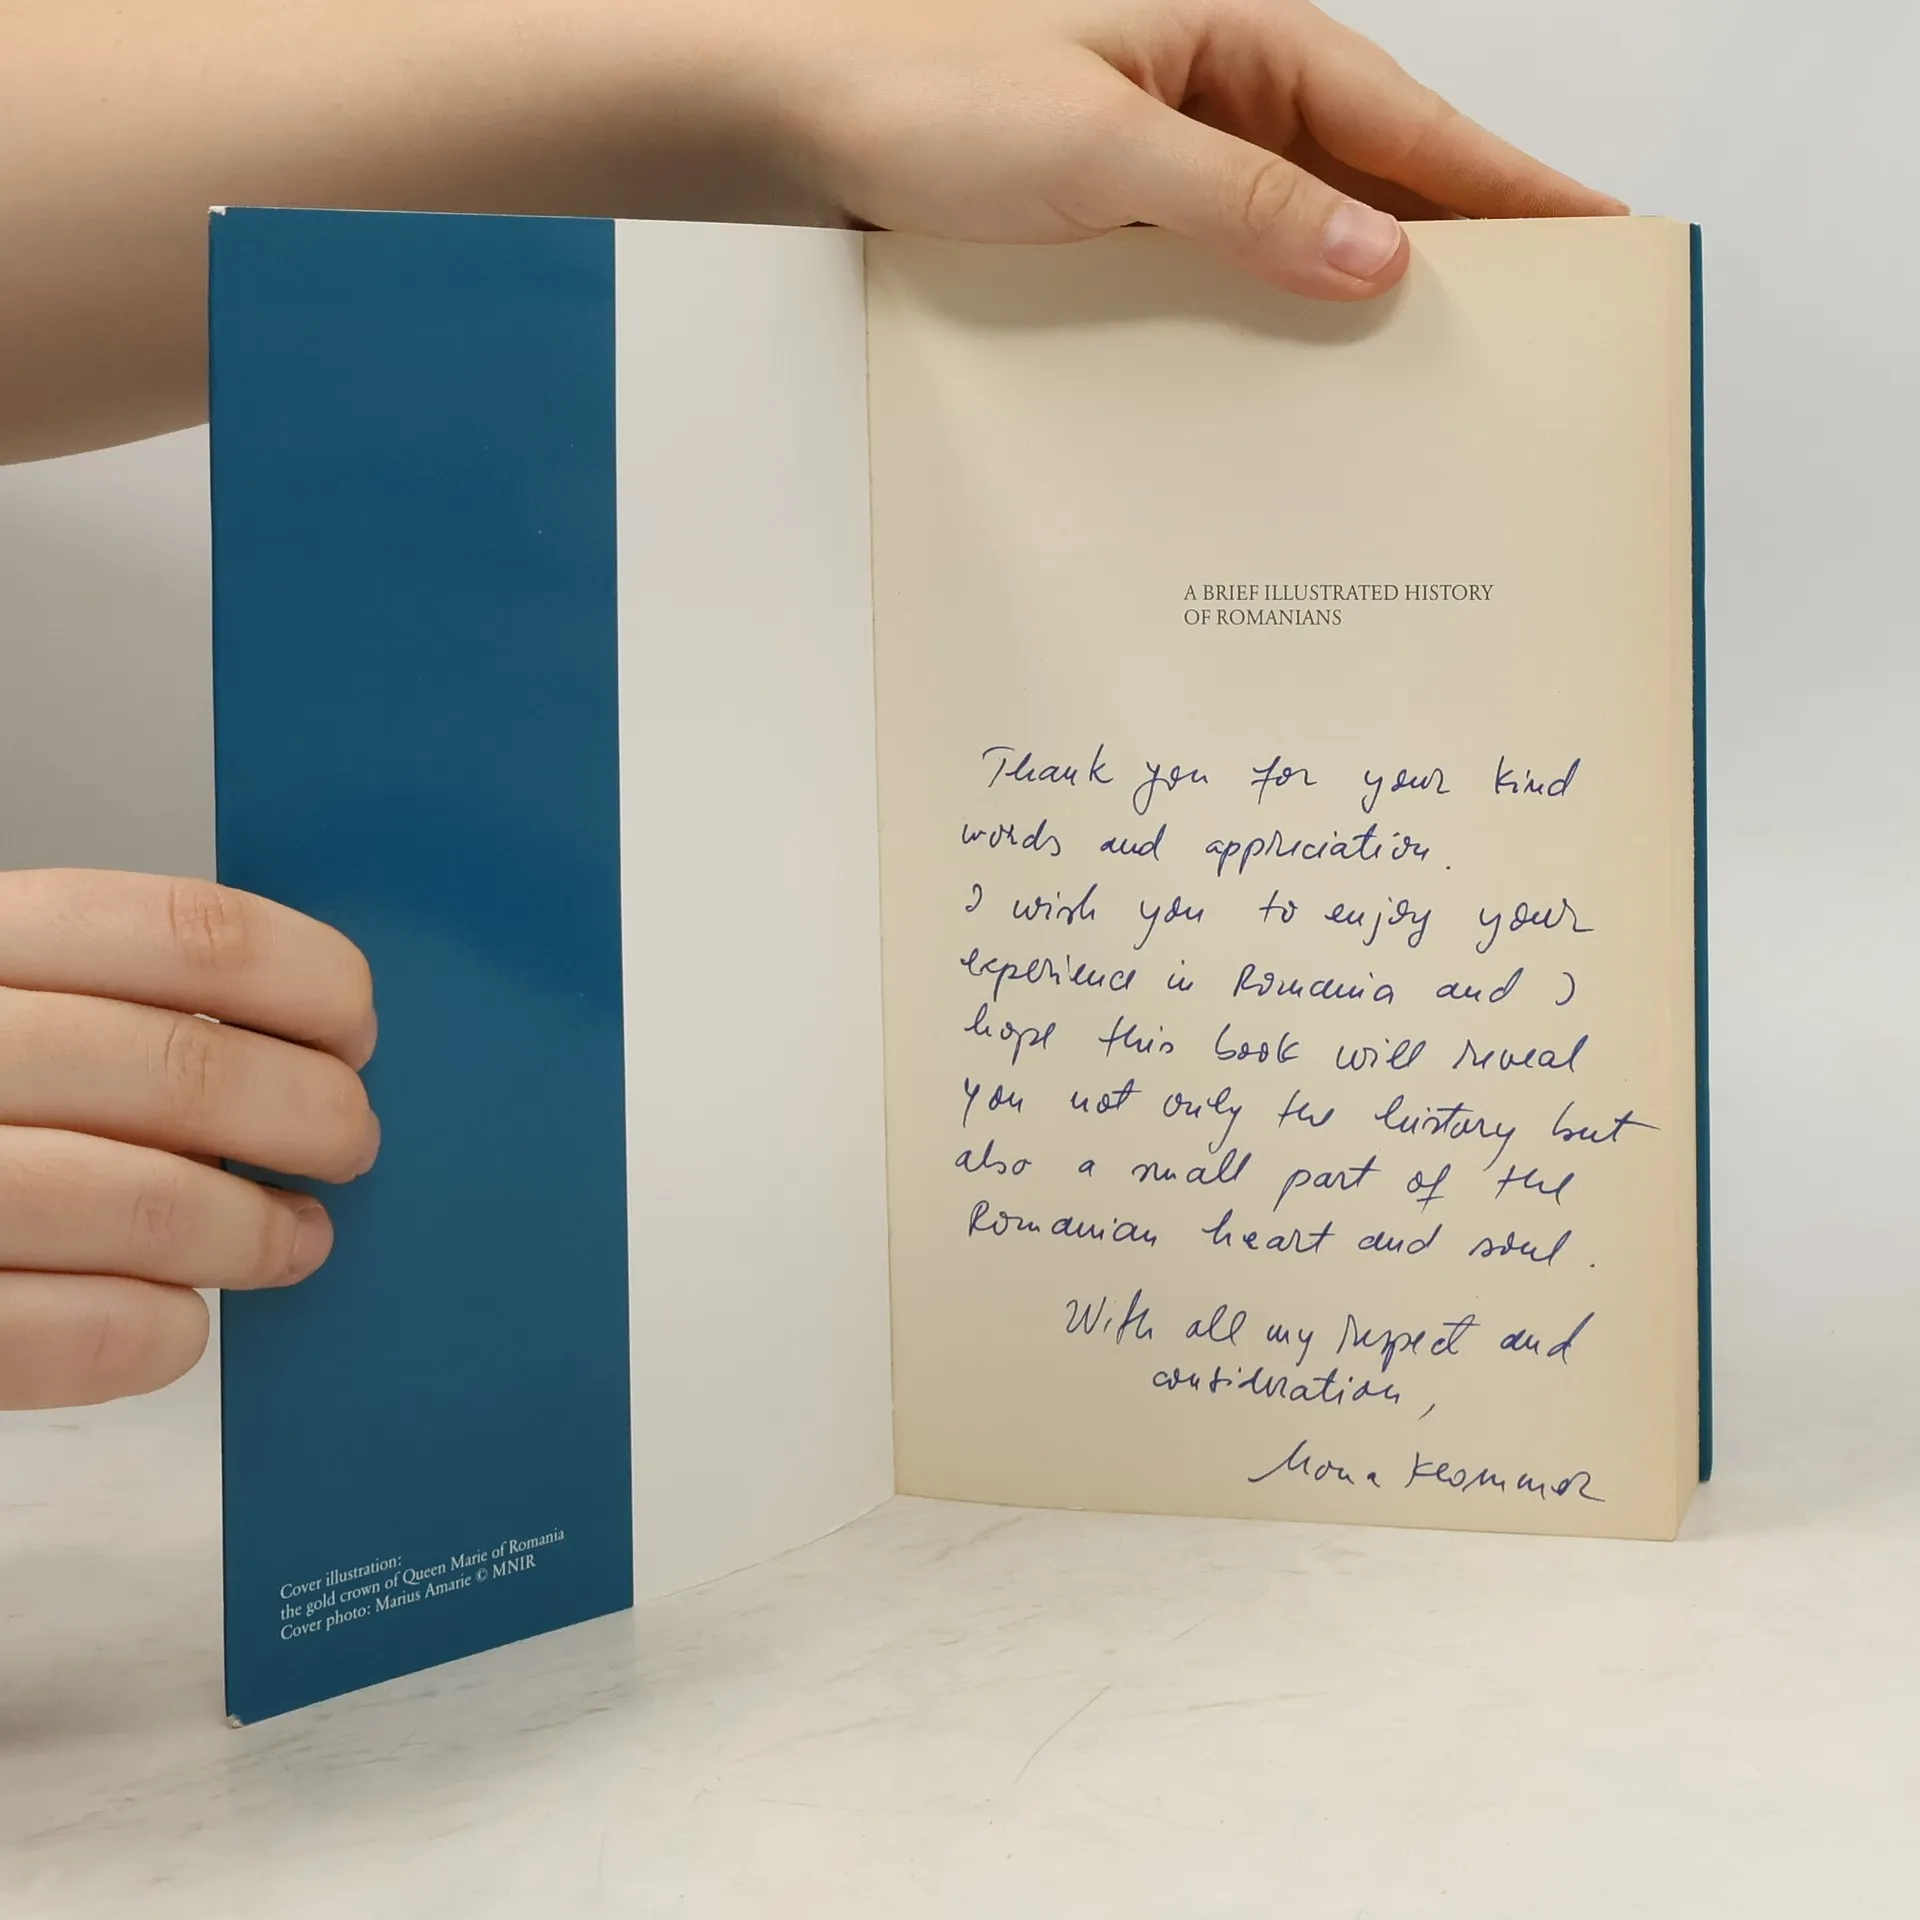 Cover illustration:
the gold crown of Queen Marie of Romania
Cover photo: Marius Amarie © MNIR
A BRIEF ILLUSTRATED HISTORY
OF ROMANIANS
Thank you for your kind
words and appreciation.
I wish you to enjoy your
experience in Romania and I
hope this book will reveal
you not only the history but
also a small part of the
Romanian heart and soul.
With all my respect and
consideration,
Mona